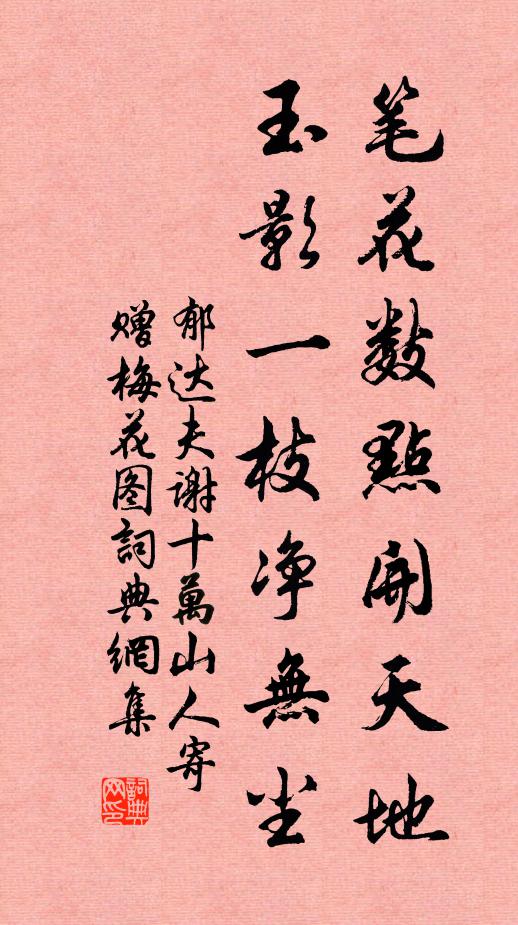 笔花数點開天地
玉影一枝净無尘
郁达夫谢十萬山人寄
赠梅花图詞典網集
詞典网印